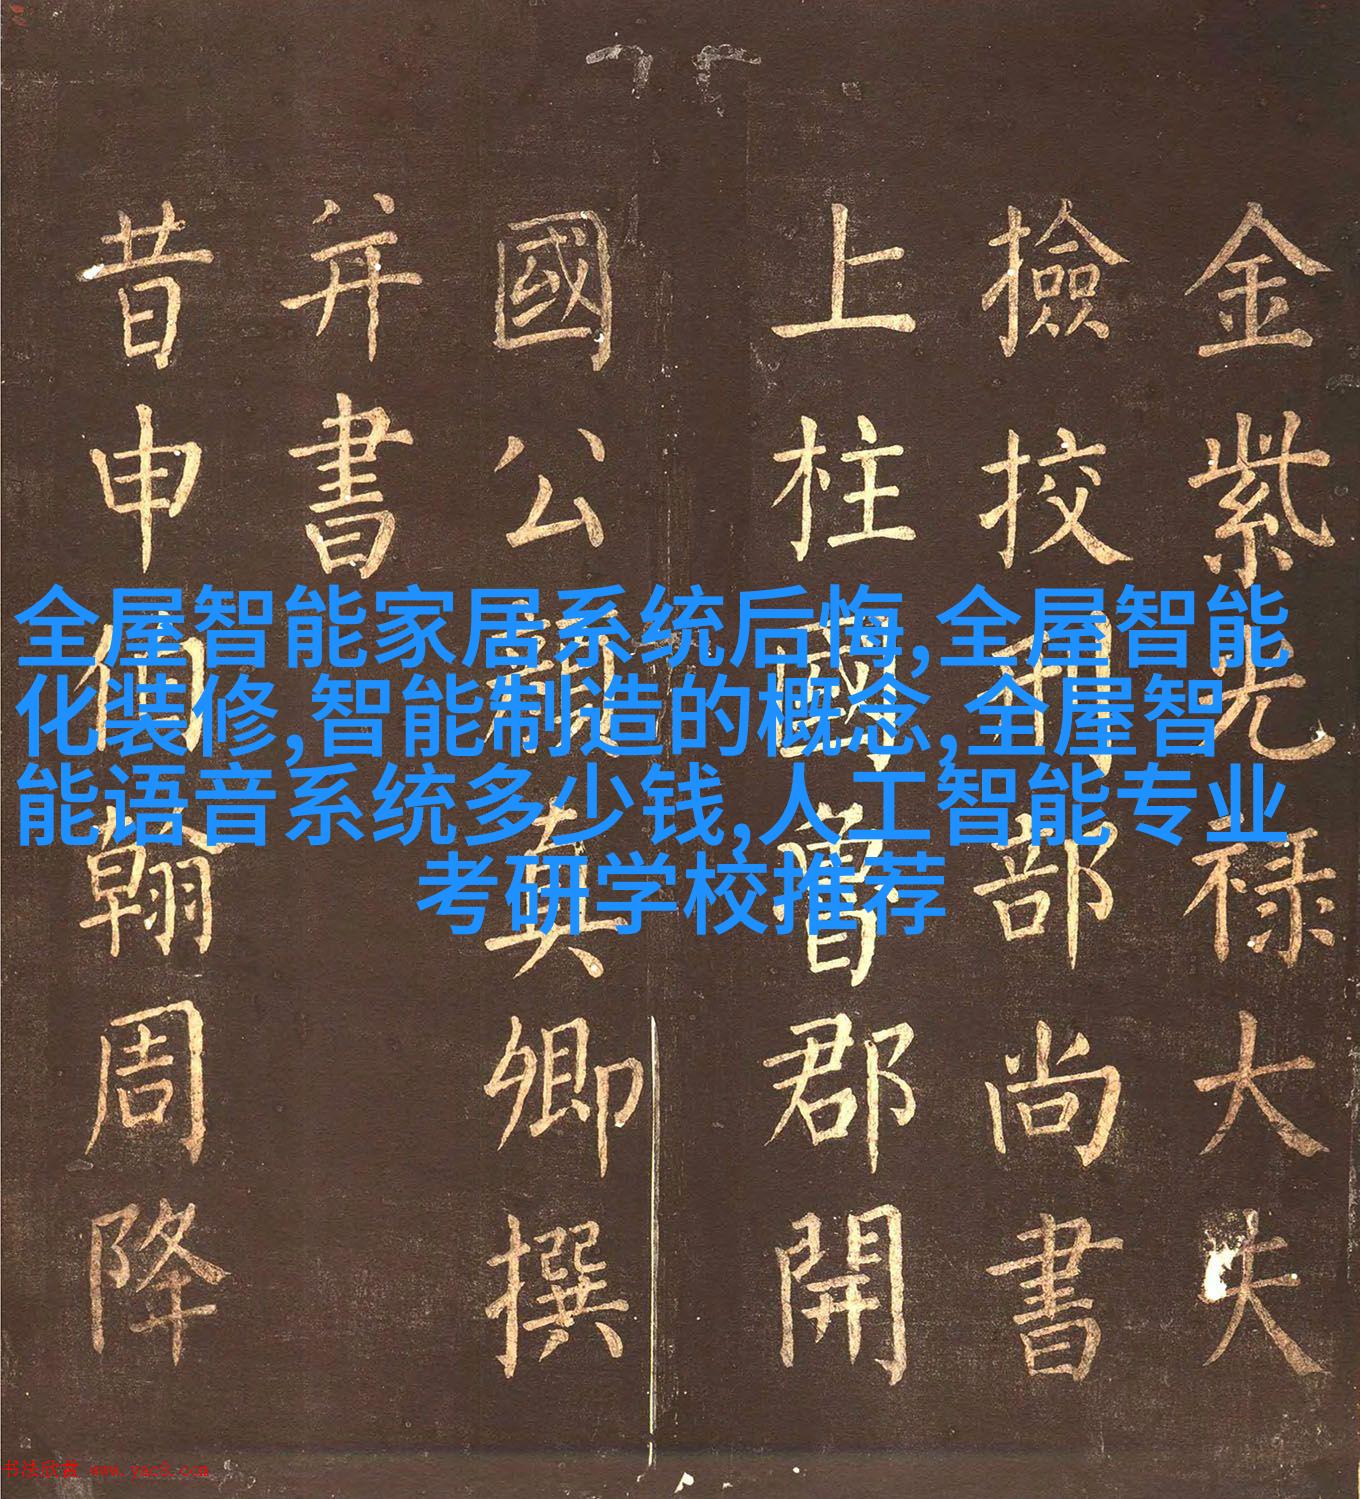 金紫光禄大夫
撿挍刑部尚書
上柱國魯郡開
國公顏真卿撰
并書
昔申伯翰周降
全屋智能家居系统后悔,全屋智能
化装修,智能制造的概念,全屋智
能语音系统多少钱,人工智能专业
考研学校推荐
书法欣赏 www.yac8.com